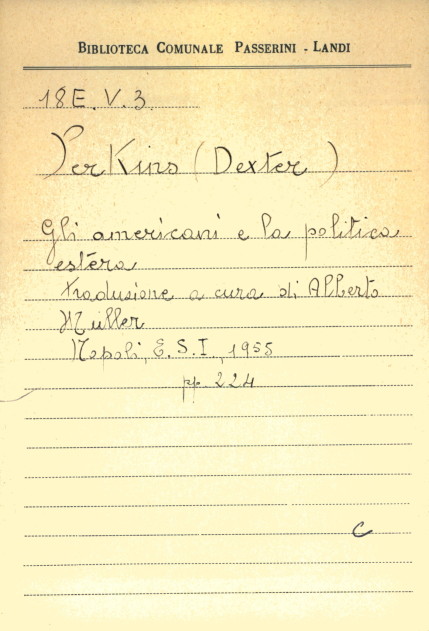 BIBLIOTECA COMUNALE PASSERINI - LANDI
18E. V. 3.
Perkins (Dexter)
Gli americani e la politica
estera
traduzione a cura di Alberto
Müller
Napoli, E. S. I., 1955
pp. 224
C